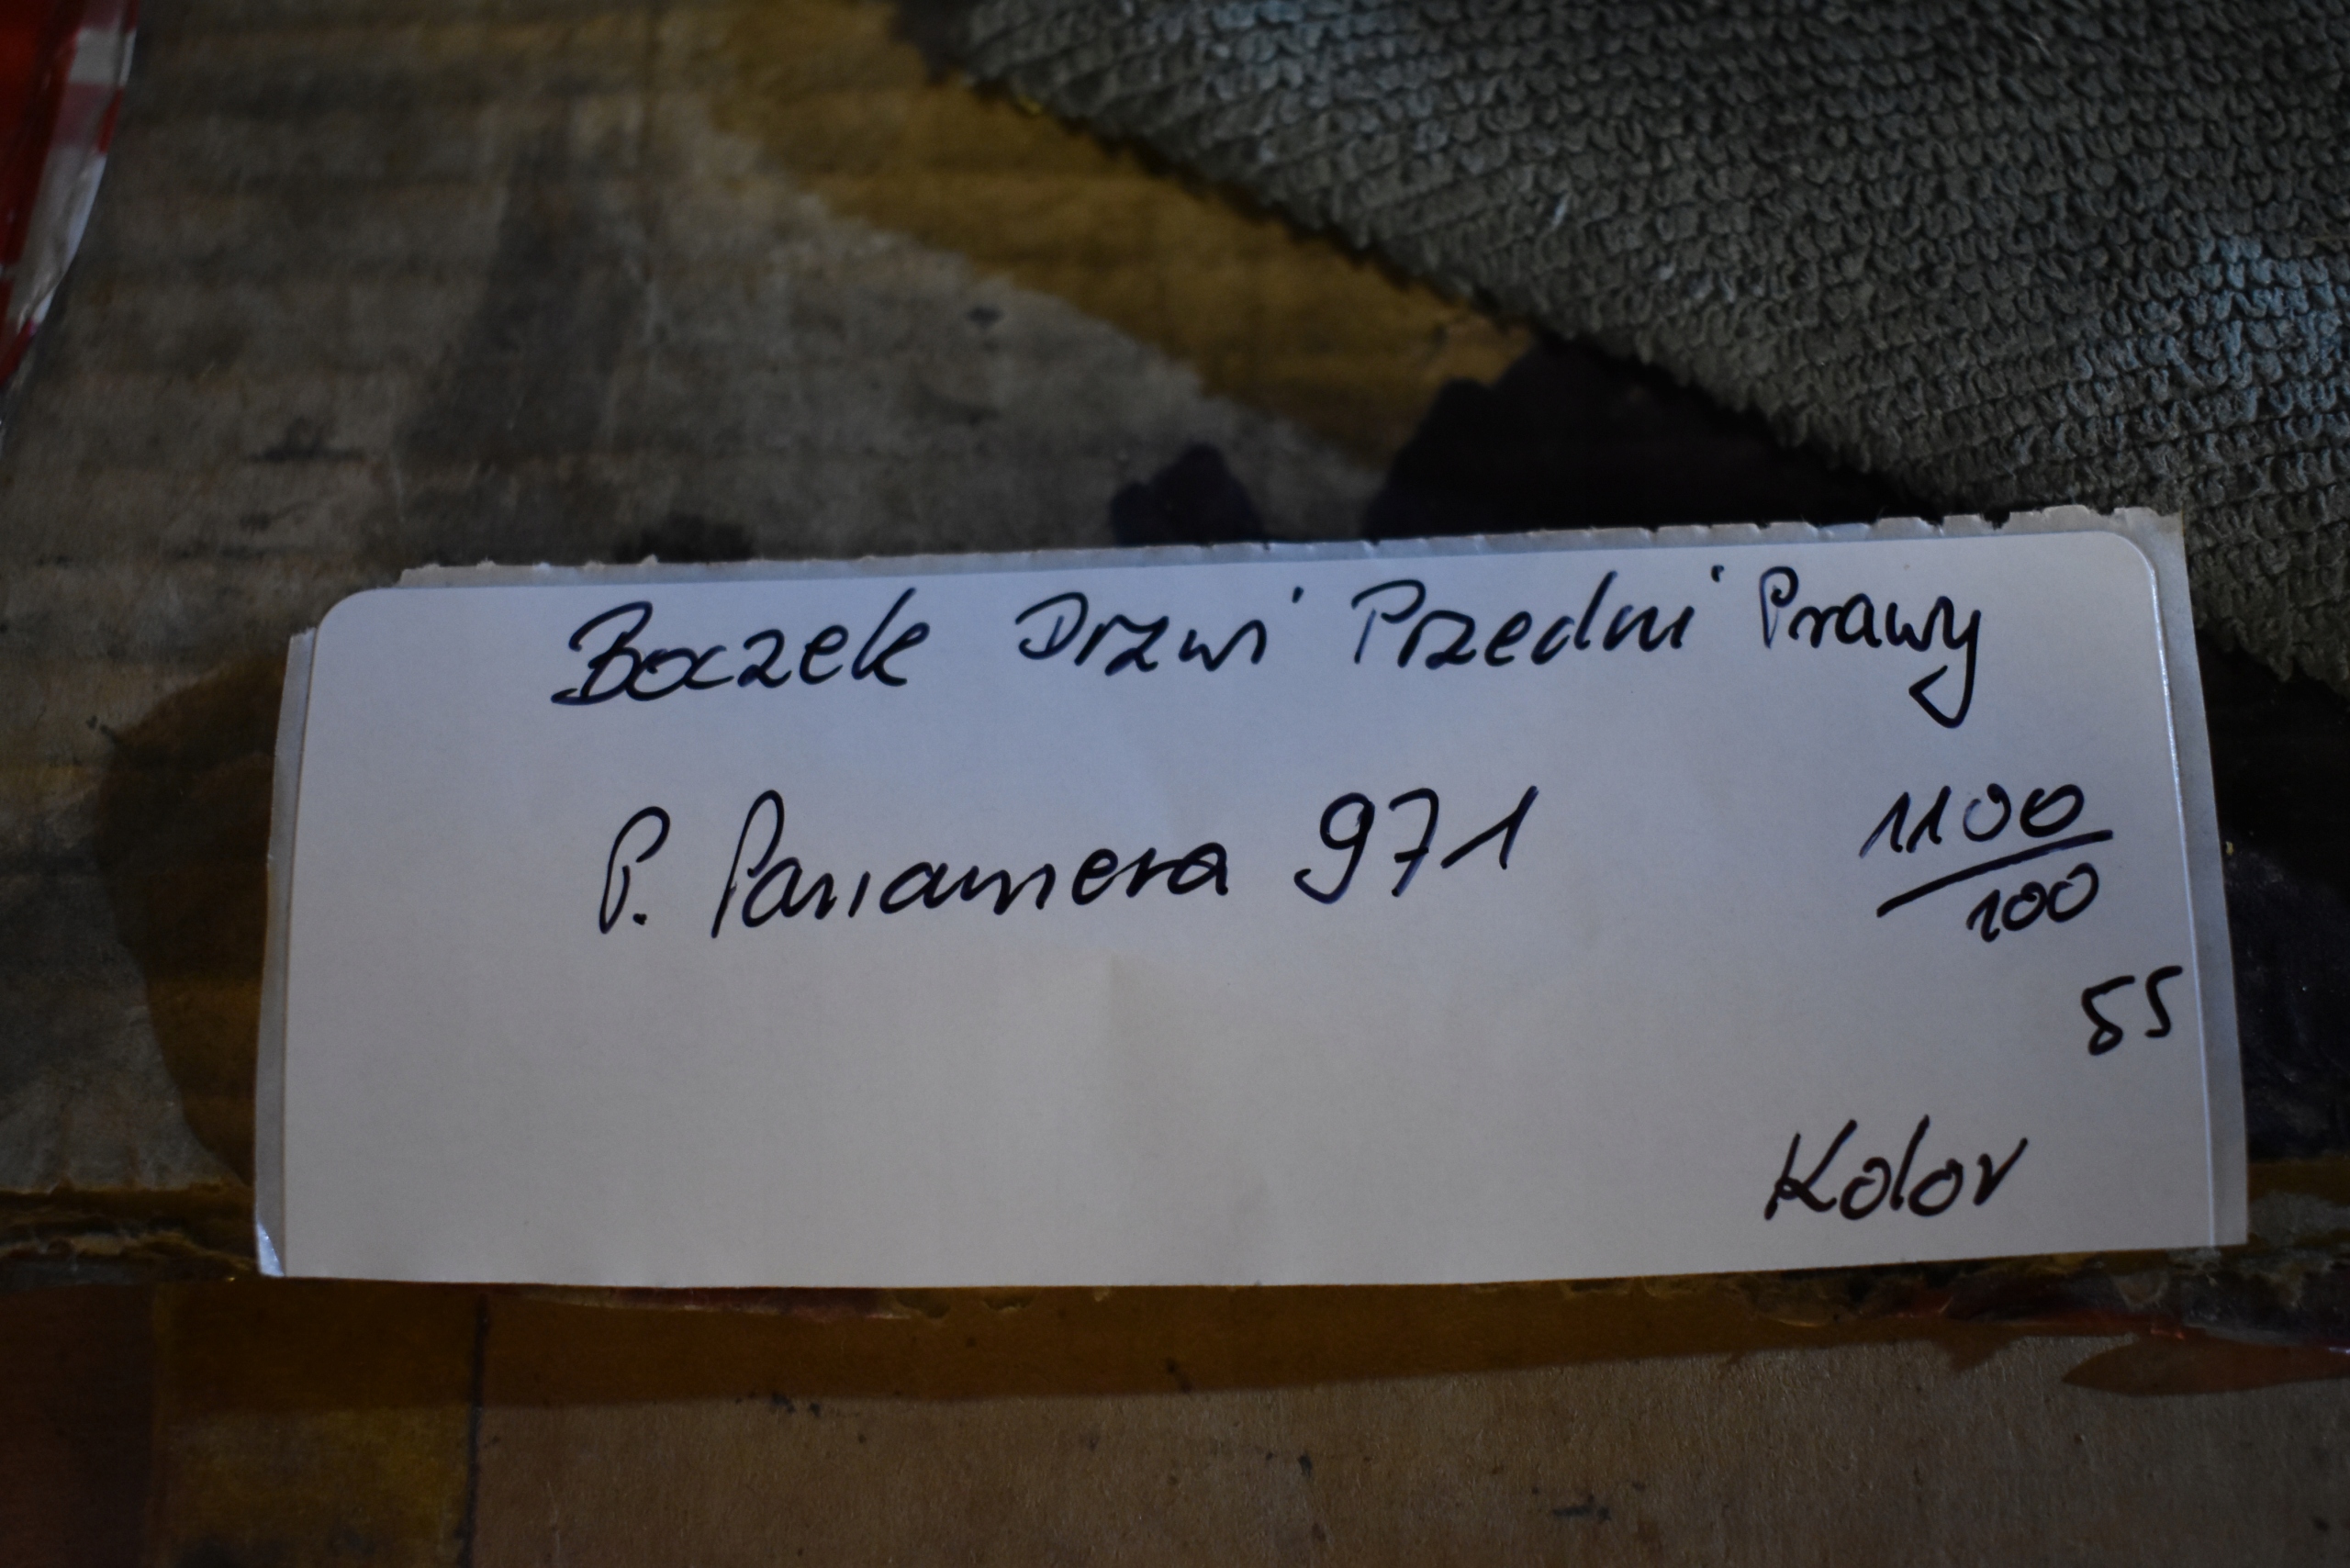 Boczek Drzwi Przedni Prawy
P. Panamera 971
1100
100
55
Kolor